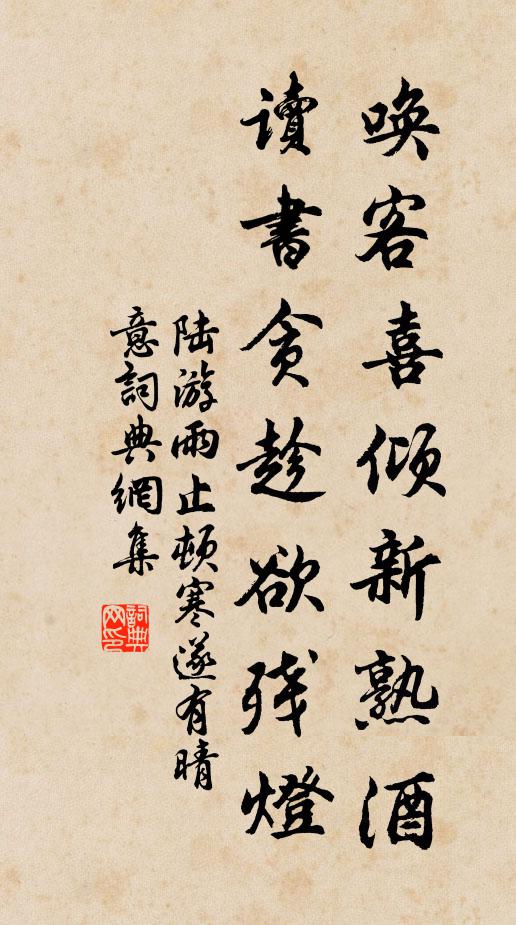 唤客喜倾新熟酒
读书贪趁欲残灯
陆游雨止顿寒遂有晴
意词典网集
词典
网印